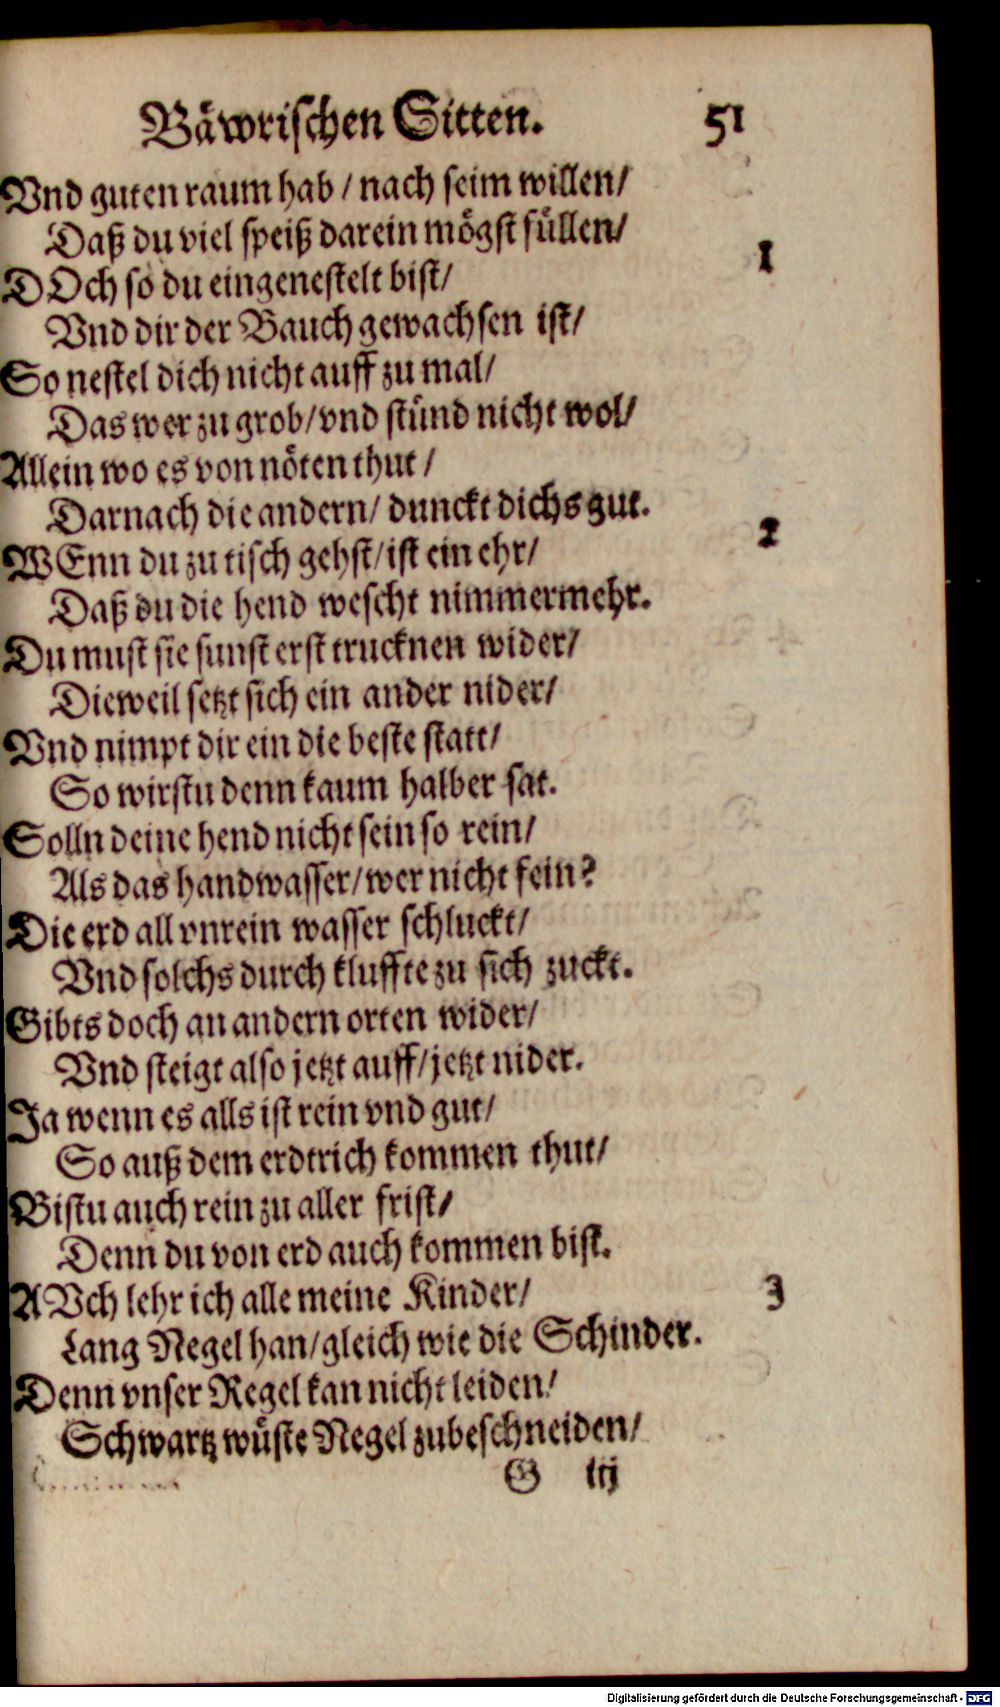 Bäwrischen Sitten. 51
Vnd guten raum hab / nach seim willen/
Daß du viel speiß darein mögst füllen/
DOch so du eingenestelt bist/ 1
Vnd dir der Bauch gewachsen ist/
So nestel dich nicht auff zu mal/
Das wer zu grob/ vnd stünd nicht wol/
Allein wo es von nöten thut /
Darnach die andern/ dunckt dichs gut.
WEnn du zu tisch gehst/ ist ein ehr/ 2
Daß du die hend wescht nimmermehr.
Du must sie sunst erst trucknen wider/
Dieweil setzt sich ein ander nider/
Vnd nimpt dir ein die beste statt/
So wirstu denn kaum halber sat.
Solln deine hend nicht sein so rein/
Als das handwasser/ wer nicht fein?
Die erd all vnrein wasser schluckt/
Vnd solchs durch kluffte zu sich zuckt.
Gibts doch an andern orten wider/
Vnd steigt also jetzt auff/ jetzt nider.
Ja wenn es alls ist rein vnd gut/
So auß dem erdtrich kommen thut/
Bistu auch rein zu aller frist/
Denn du von erd auch kommen bist.
AVch lehr ich alle meine Kinder/ 3
Lang Negel han/ gleich wie die Schinder.
Denn vnser Regel kan nicht leiden/
Schwartz wüste Negel zubeschneiden/
G iij
Digitalisierung gefördert durch die Deutsche Forschungsgemeinschaft - DFG